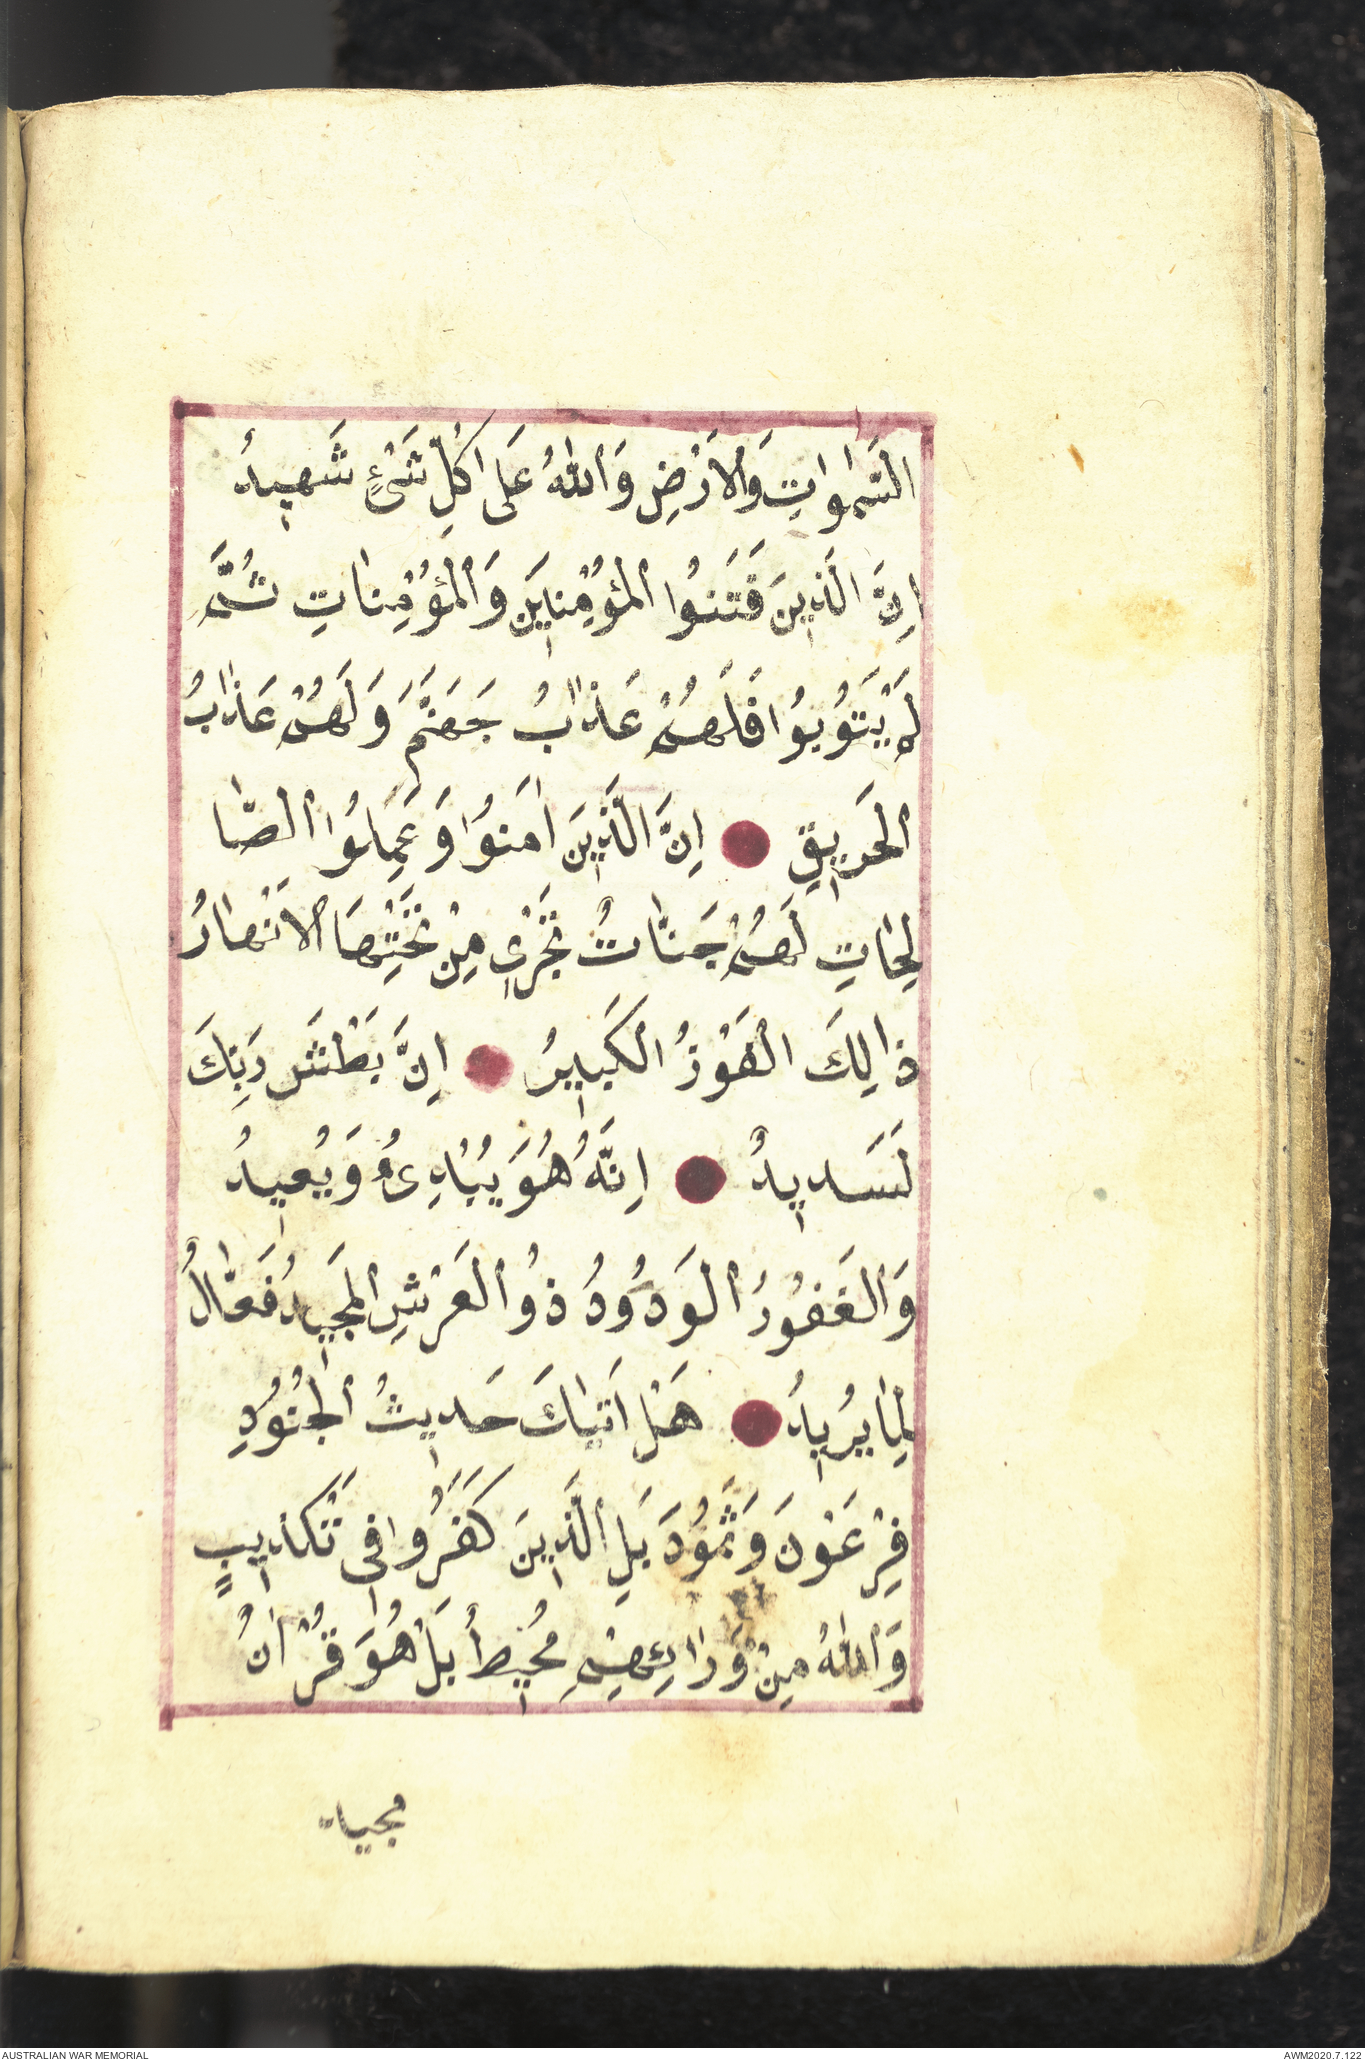 السَّمٰوَاتِ وَالْاَرْضِ وَاللّٰهُ عَلٰى كُلِّ شَىْءٍ شَهِيدُ
اِنَّ الَّذِينَ فَتَنُوا الْمُؤْمِنِينَ وَالْمُؤْمِنَاتِ ثُمَّ
لَمْ يَتُوبُوا فَلَهُمْ عَذَابُ جَهَنَّمَ وَلَهُمْ عَذَابُ
الْحَرِيقِ اِنَّ الَّذِينَ اٰمَنُوا وَعَمِلُوا الصَّا
لِحَاتِ لَهُمْ جَنَّاتٌ تَجْرِى مِنْ تَحْتِهَا الْاَنْهَارُ
ذَالِكَ الْفَوْزُ الْكَبِيرُ اِنَّ بَطْشَ رَبِّكَ
لَسَدِيدٌ اِنَّهُ هُوَ يُبْدِىءُ وَيُعِيدُ
وَالْغَفُورُ الْوَدُودُ ذُوالْعَرْشِ الْمَجِيدُ فَعَّالُ
لِمَا يُرِيدُ هَلْ اَتٰيكَ حَدِيثُ الْجُنُودِ
فِرْعَوْنَ وَثَمُودَ بَلِ الَّذِينَ كَفَرُوا فِى تَكْذِيبٍ
وَاللّٰهُ مِنْ وَرَائِهِمْ مُحِيطُ بَلْ هُوَ قُرْاٰنُ
مجيد
AUSTRALIAN WAR MEMORIAL
AWM2020.7.122